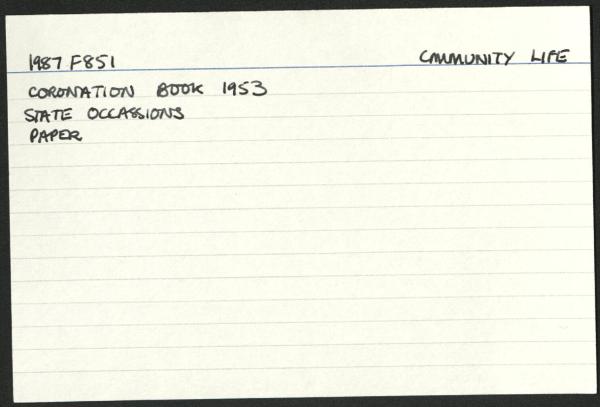 1987 F851 COMMUNITY LIFE
CORONATION BOOK 1953
STATE OCCASSIONS
PAPER